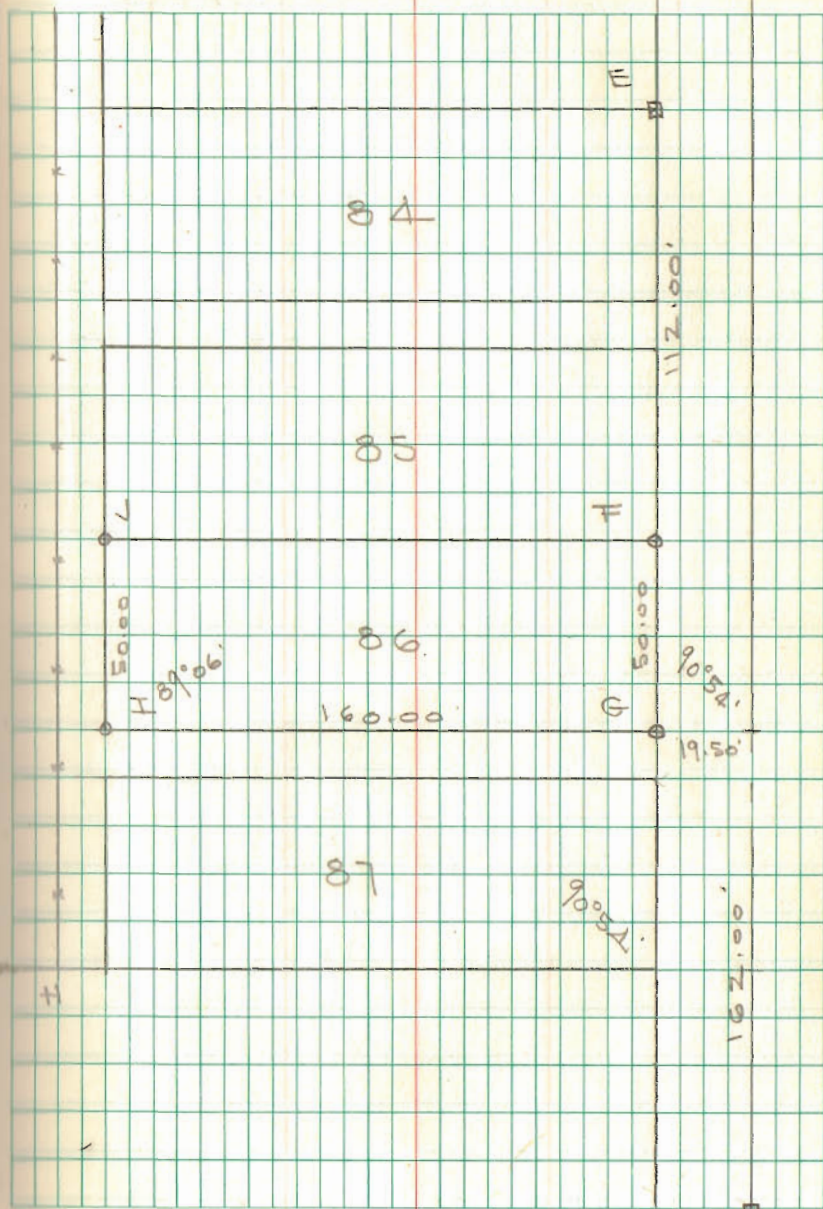 E
84
112.00'
85
L
F
50.00
86
50.00
90°54'
I
89°06'
160.00
G
19.50'
87
90°54'
162.00'